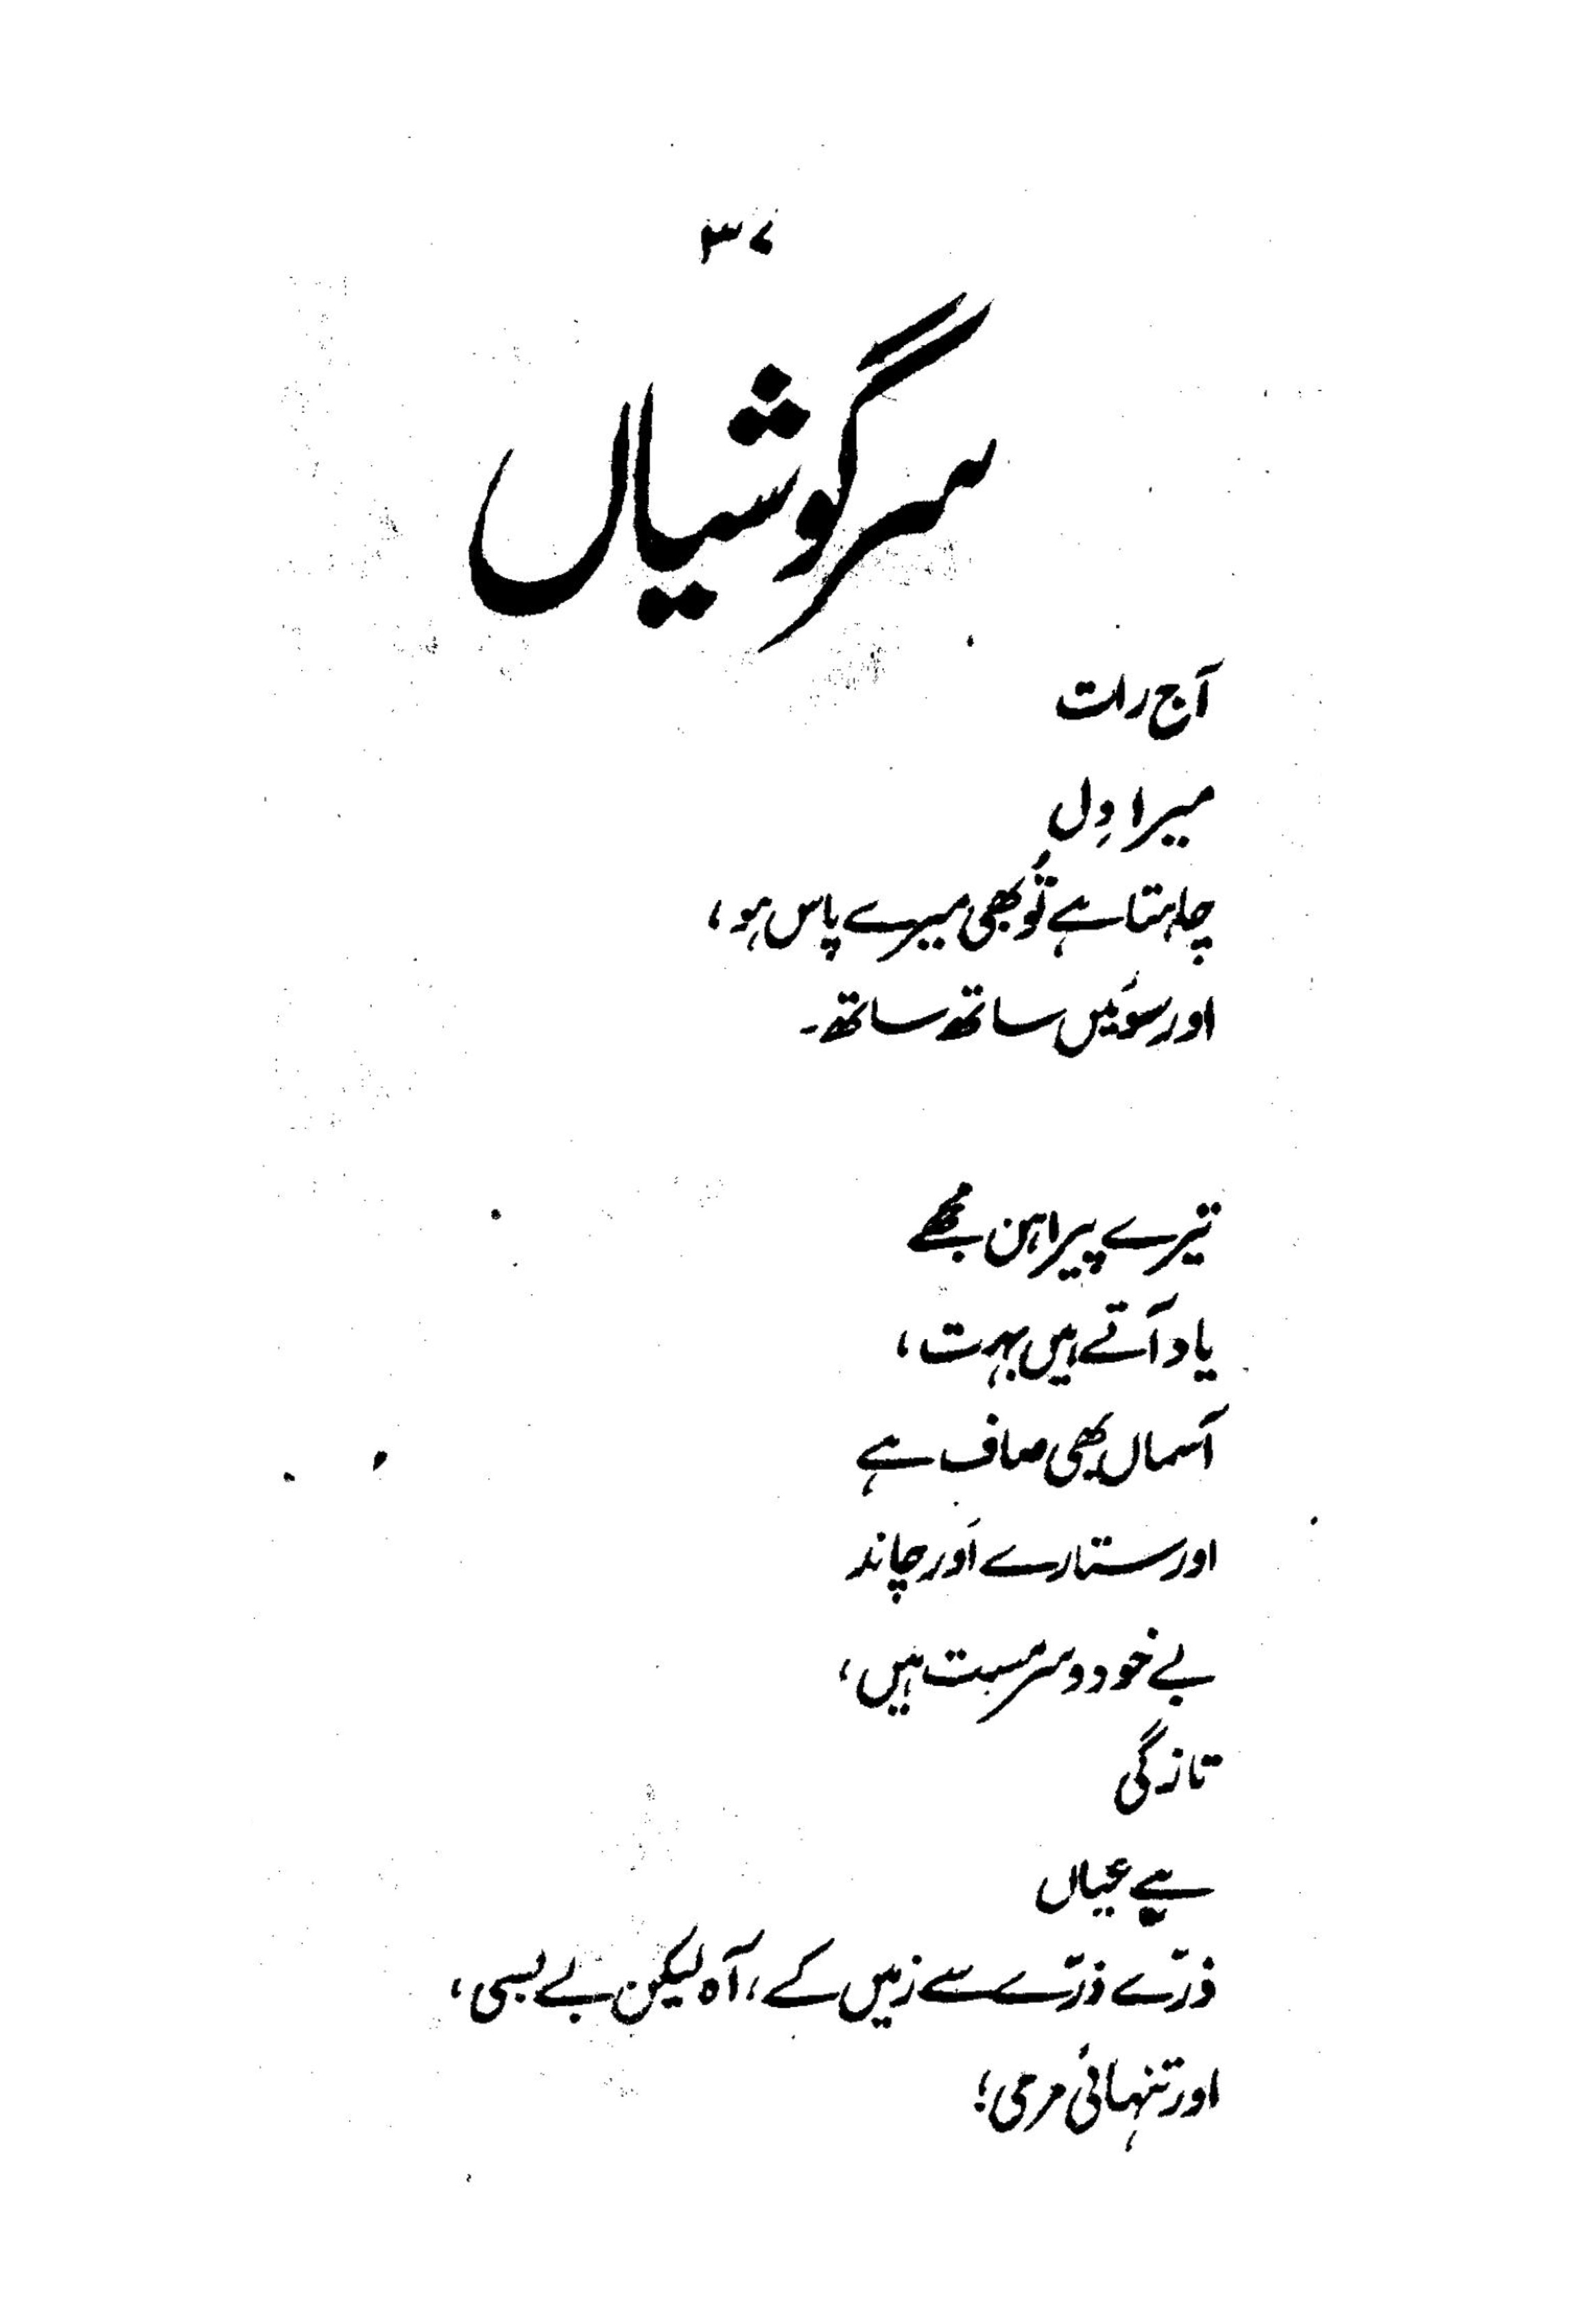 ۳۷
سرگوشیاں
آج رات
میرا دِل
چاہتا ہے تُو بھی میرے پاس ہو،
اور سوئیں ساتھ ساتھ۔
تیرے پیراہن مجھے
یاد آتے ہیں بہت،
آسماں بھی صاف ہے
اور ستارے اَور چاند
بے خود و سرمست ہیں،
تازگی
ہے عیاں
ذرّے ذرّے سے زمیں کے، آہ لیکن بے بسی،
اور تنہائی مری!